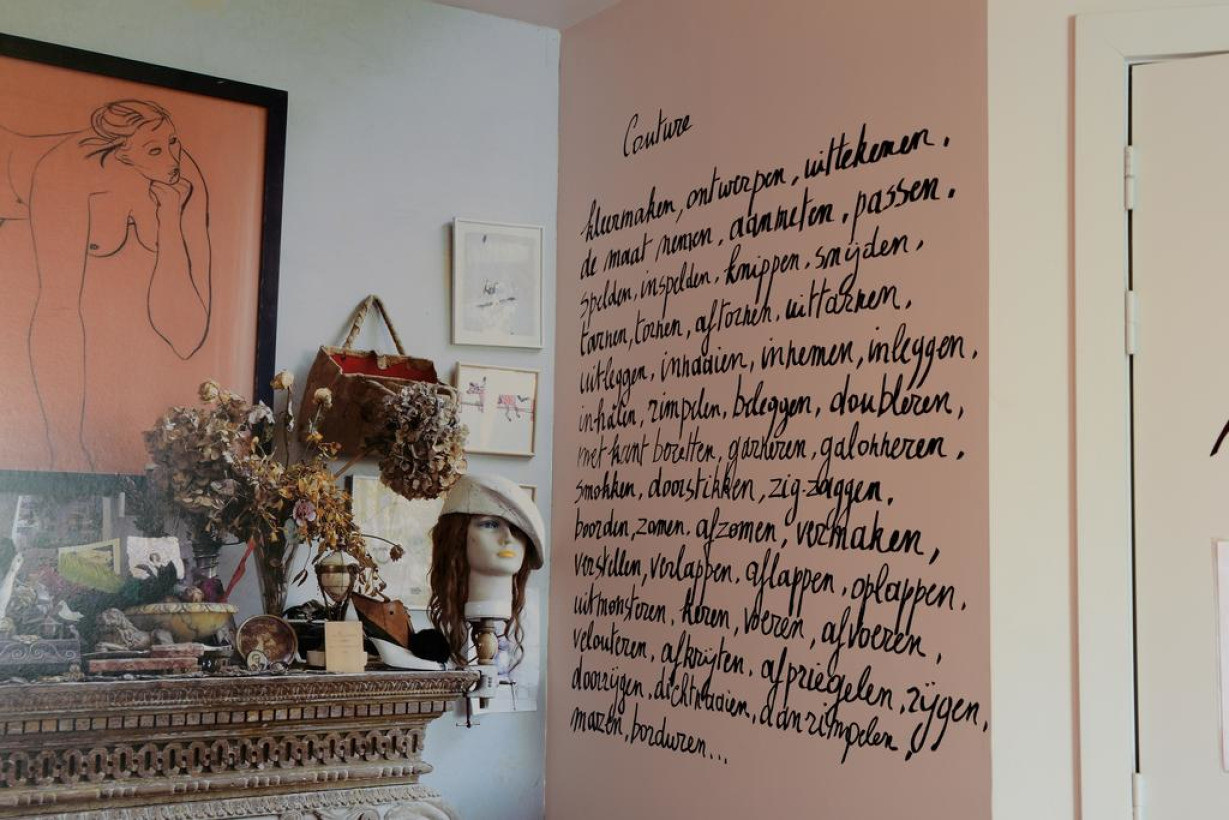 Couture
kleermaken, ontwerpen, uittekenen.
de maat nemen, aanmeten, passen.
spelden, inspelden, knippen, snijden,
tarnen, tornen, aftornen, uittarnen,
uitleggen, innaaien, innemen, inleggen,
inhalen, rimpelen, beleggen, doubleren,
met kant bezetten, garneren, galonneren,
smokken, doorstikken, zig-zaggen,
boorden, zomen, afzomen, vermaken,
verstellen, verlappen, aflappen, oplappen,
uitmonsteren, keren, voeren, afvoeren,
velouteren, afkrijten, afpriegelen, rijgen,
doorrijgen, dichtnaaien, aanrimpelen,
mazen, borduren...